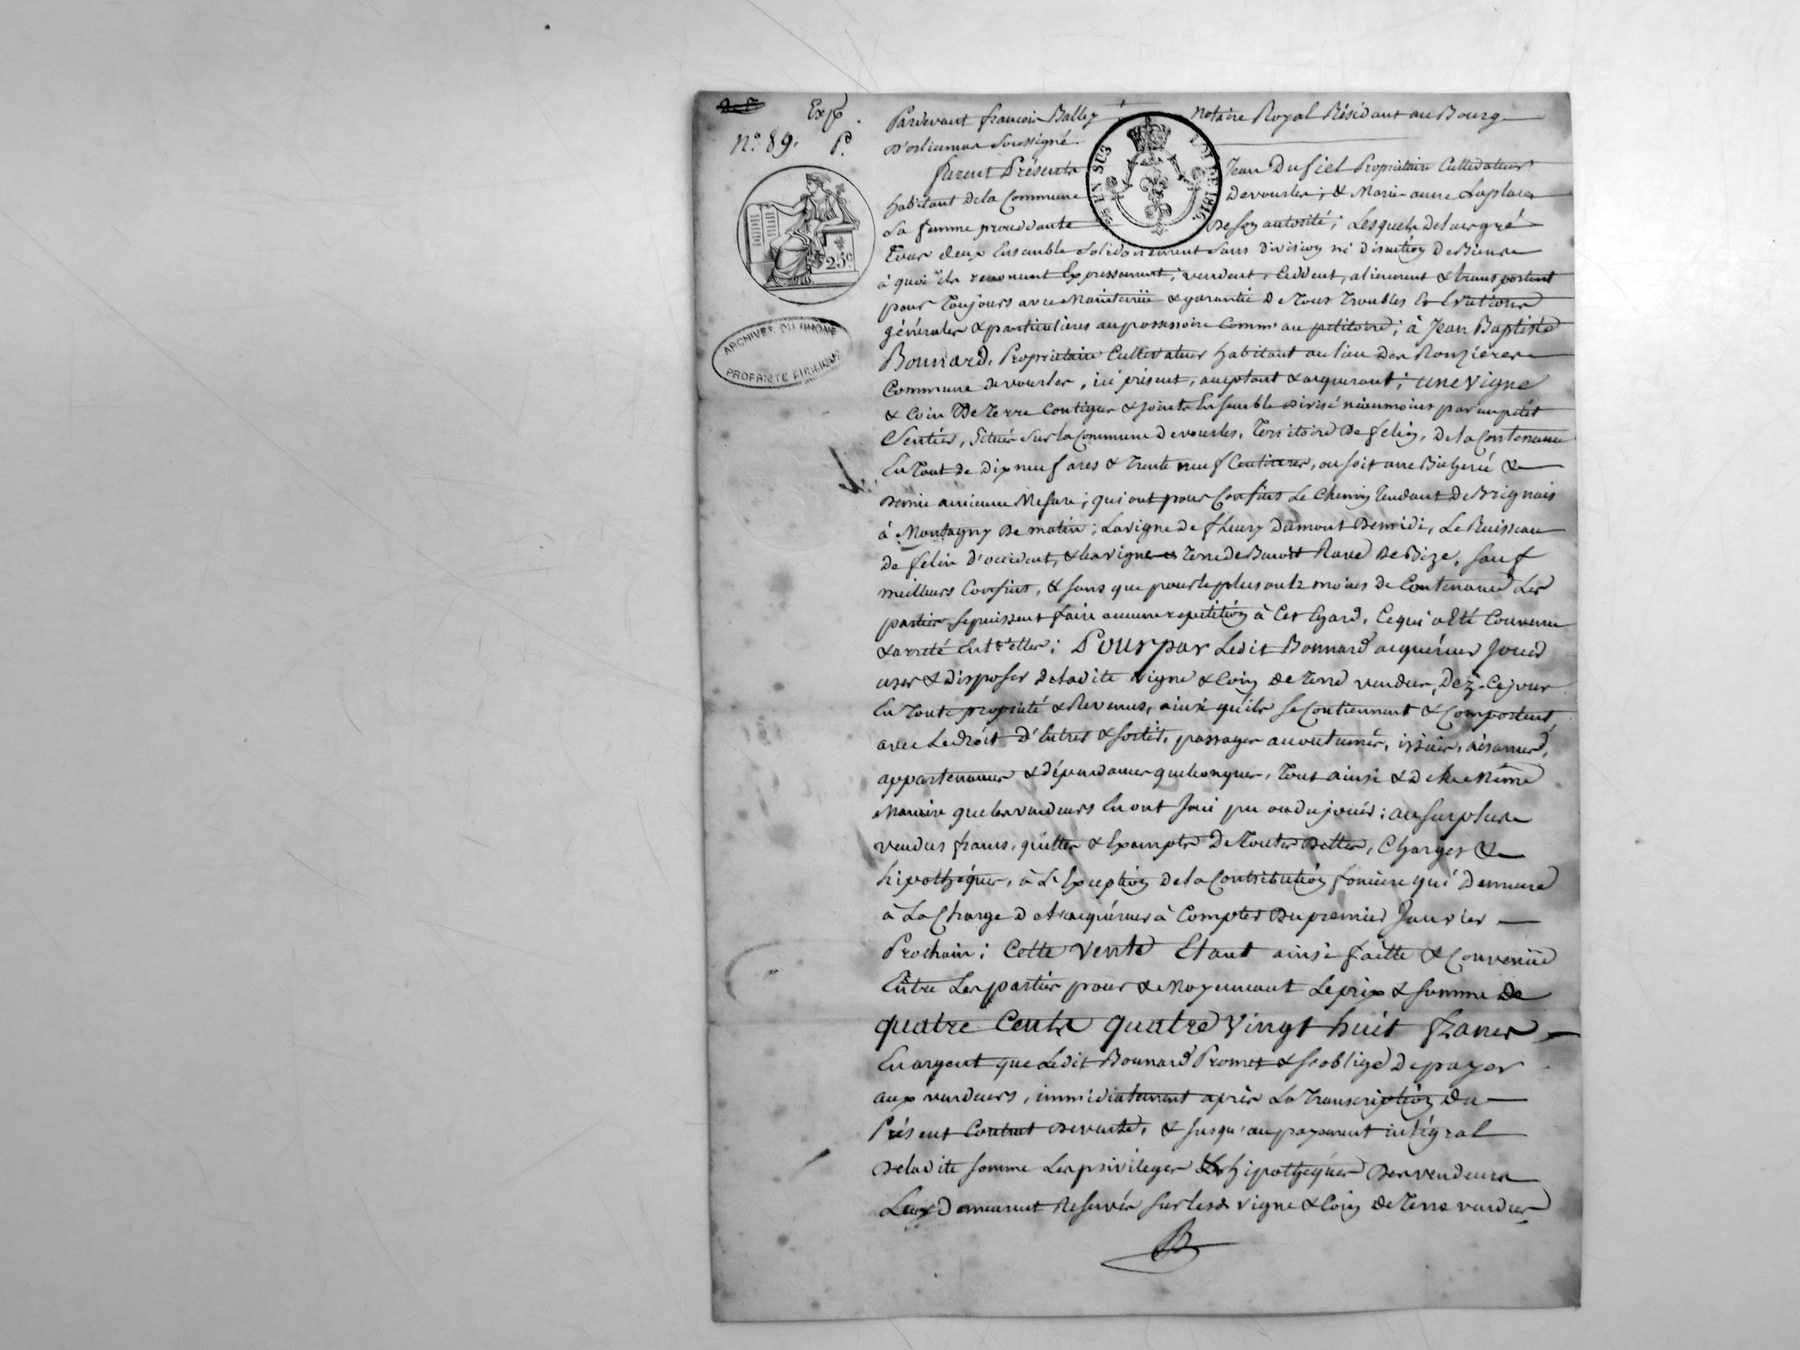 Exp.
N.º 89. P.º
25c
ARCHIVES DU RHONE
PROPRIÉTÉ PUBLIQUE
EN SUS
LOI DE 1816
Pardevant françois Balley Notaire Royal Résidant au Bourg
D'orliennas Soussigné
furent Présents Jean Dufiel Propriétaire Cultivateur
habitant de la Commune de vourles; & Marie anne Laplace
Sa femme procédante De son autorité; Lesquels de leur gré
Tous deux Ensemble solidairement sans division ni discution De Biens
à quoi ils renoncent Expressement; vendent, Cèdent, aliennent & transportent
pour Toujours avec Maintenüe & garantie De Tous Troubles & Evictions
générales & particulières au possessoire Comm' au petitoire; à Jean Baptiste
Bonnard, Propriétaire Cultivateur habitant au lieu des Ronzières
Commune de vourles, ici présent, acceptant & acquerant; une Vigne
& Coin De Terre Contigus & joints Ensemble Divisé néenmoins par un petit
Sentier, Situés sur la Commune de vourles, Territoire De felin, de la Contenance
En Tout de Dix neuf ares & Trente neuf Centiares, ou soit une Bicherée &
Demie ancienne Mesure; qui ont pour Confins Le Chemin Tendant De Brignais
à Montagny De matin; La vigne de fleury Damont De midi, Le Ruisseau
de felin d'occident, & la vigne & Terre de Benoit Rave De Bize, sauf
meilleurs Confins, & sans que pour le plus ou le moins de Contenance Les
parties se puissent faire aucune repetition à Cet Egard, Ce qui a Eté Convenu
& arreté Entr'elles: Pour par Ledit Bonnard acquéreur Jouir
user & disposer de ladite vigne & Coin De Terre vendus, Dez-Ce jour
En Toute propriété & Revenus, ainsi qu'ils se Contiennent & Comportent,
avec Le droit d'Entrés & sortis, passages accoutumés, issües, aisances,
appartenances & dépendances quelconques, Tout ainsi & De la Même
Manière que les vendeurs En ont Joui pu ou du jouir: au surplus
vendus francs, quittes & Exempts De Toutes Dettes, Charges &
hipothéques, à L'Exception de la Contribution foncière qui demeure
à La Charge de l'acquéreur à Compter Du premier Janvier
Prochain: Cette Vente Etant ainsi faitte & Convenüe
Entre Les parties pour & Moyennant Le prix & somme De
quatre Cents quatre Vingt huit francs
En argent que Ledit Bonnard Promet & s'oblige De payer
aux vendeurs, immédiatement après La Transcription du
Présent Contrat De vente, & Jusqu'au payement intégral
De ladite somme Les privileges & hipothéques Des vendeurs
Leur Demeurent Reservés sur lesd. vigne & Coin De Terre vendus
B